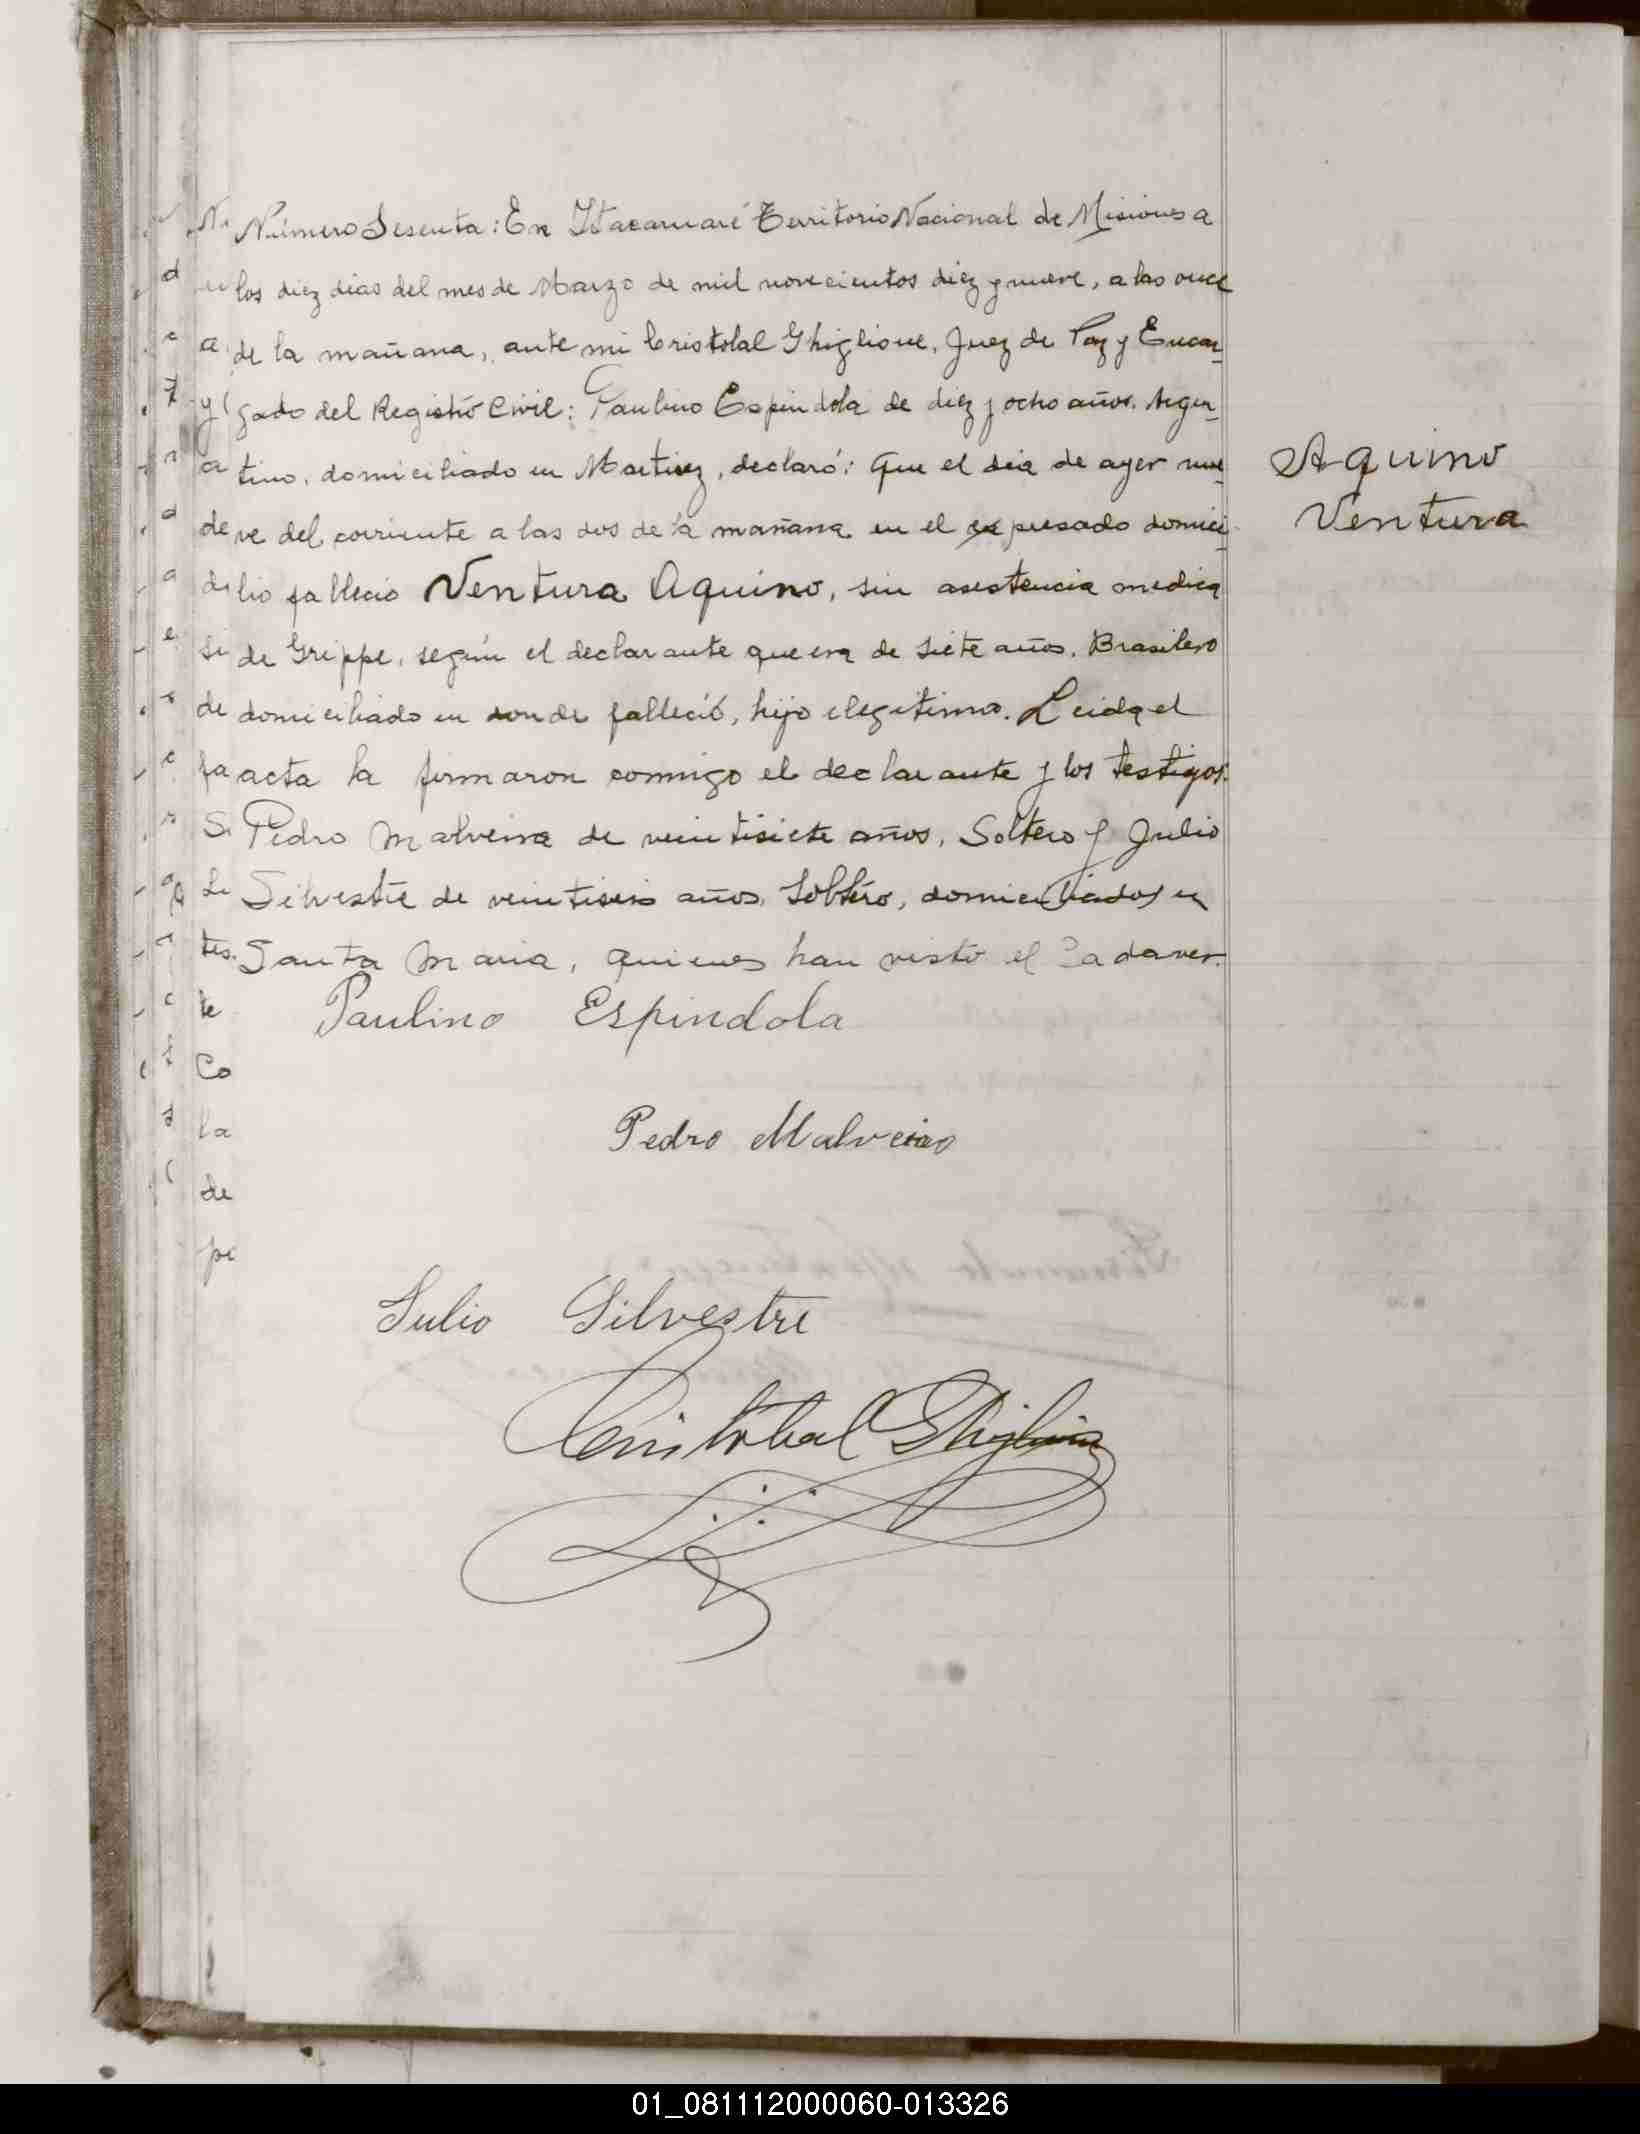 Número Sesenta: En Itacaruaré Territorio Nacional de Misiones a
los diez dias del mes de Marzo de mil novecientos diez y nueve, a las once
de la mañana, ante mi Cristobal Ghiglione, Juez de Paz y Encar_
gado del Registro Civil: Paulino Espindola de diez y ocho años. Argen_
tino, domiciliado en Martirez, declaró: Que el dia de ayer nue_
ve del corriente a las dos de la mañana en el expresado domici_
lio fallecio Ventura Aquino, sin asestencia medica
de Grippe, según el declarante que era de siete años. Brasilero
domiciliado en donde falleció, hijo elegitimo. Leida el
acta la firmaron conmigo el declarante y los testigos.
Pedro Malveira de veintisiete años, Soltero y Julio
Silvestre de veintiseis años, Soltero, domiciliados en
Santa Maria, quienes han visto el Cadaver.
Aquino
Ventura
Paulino Espindola
Pedro Malveira
Julio Silvestre
Cristobal Ghiglione
te
Co
la
de
pe
01_081112000060-013326